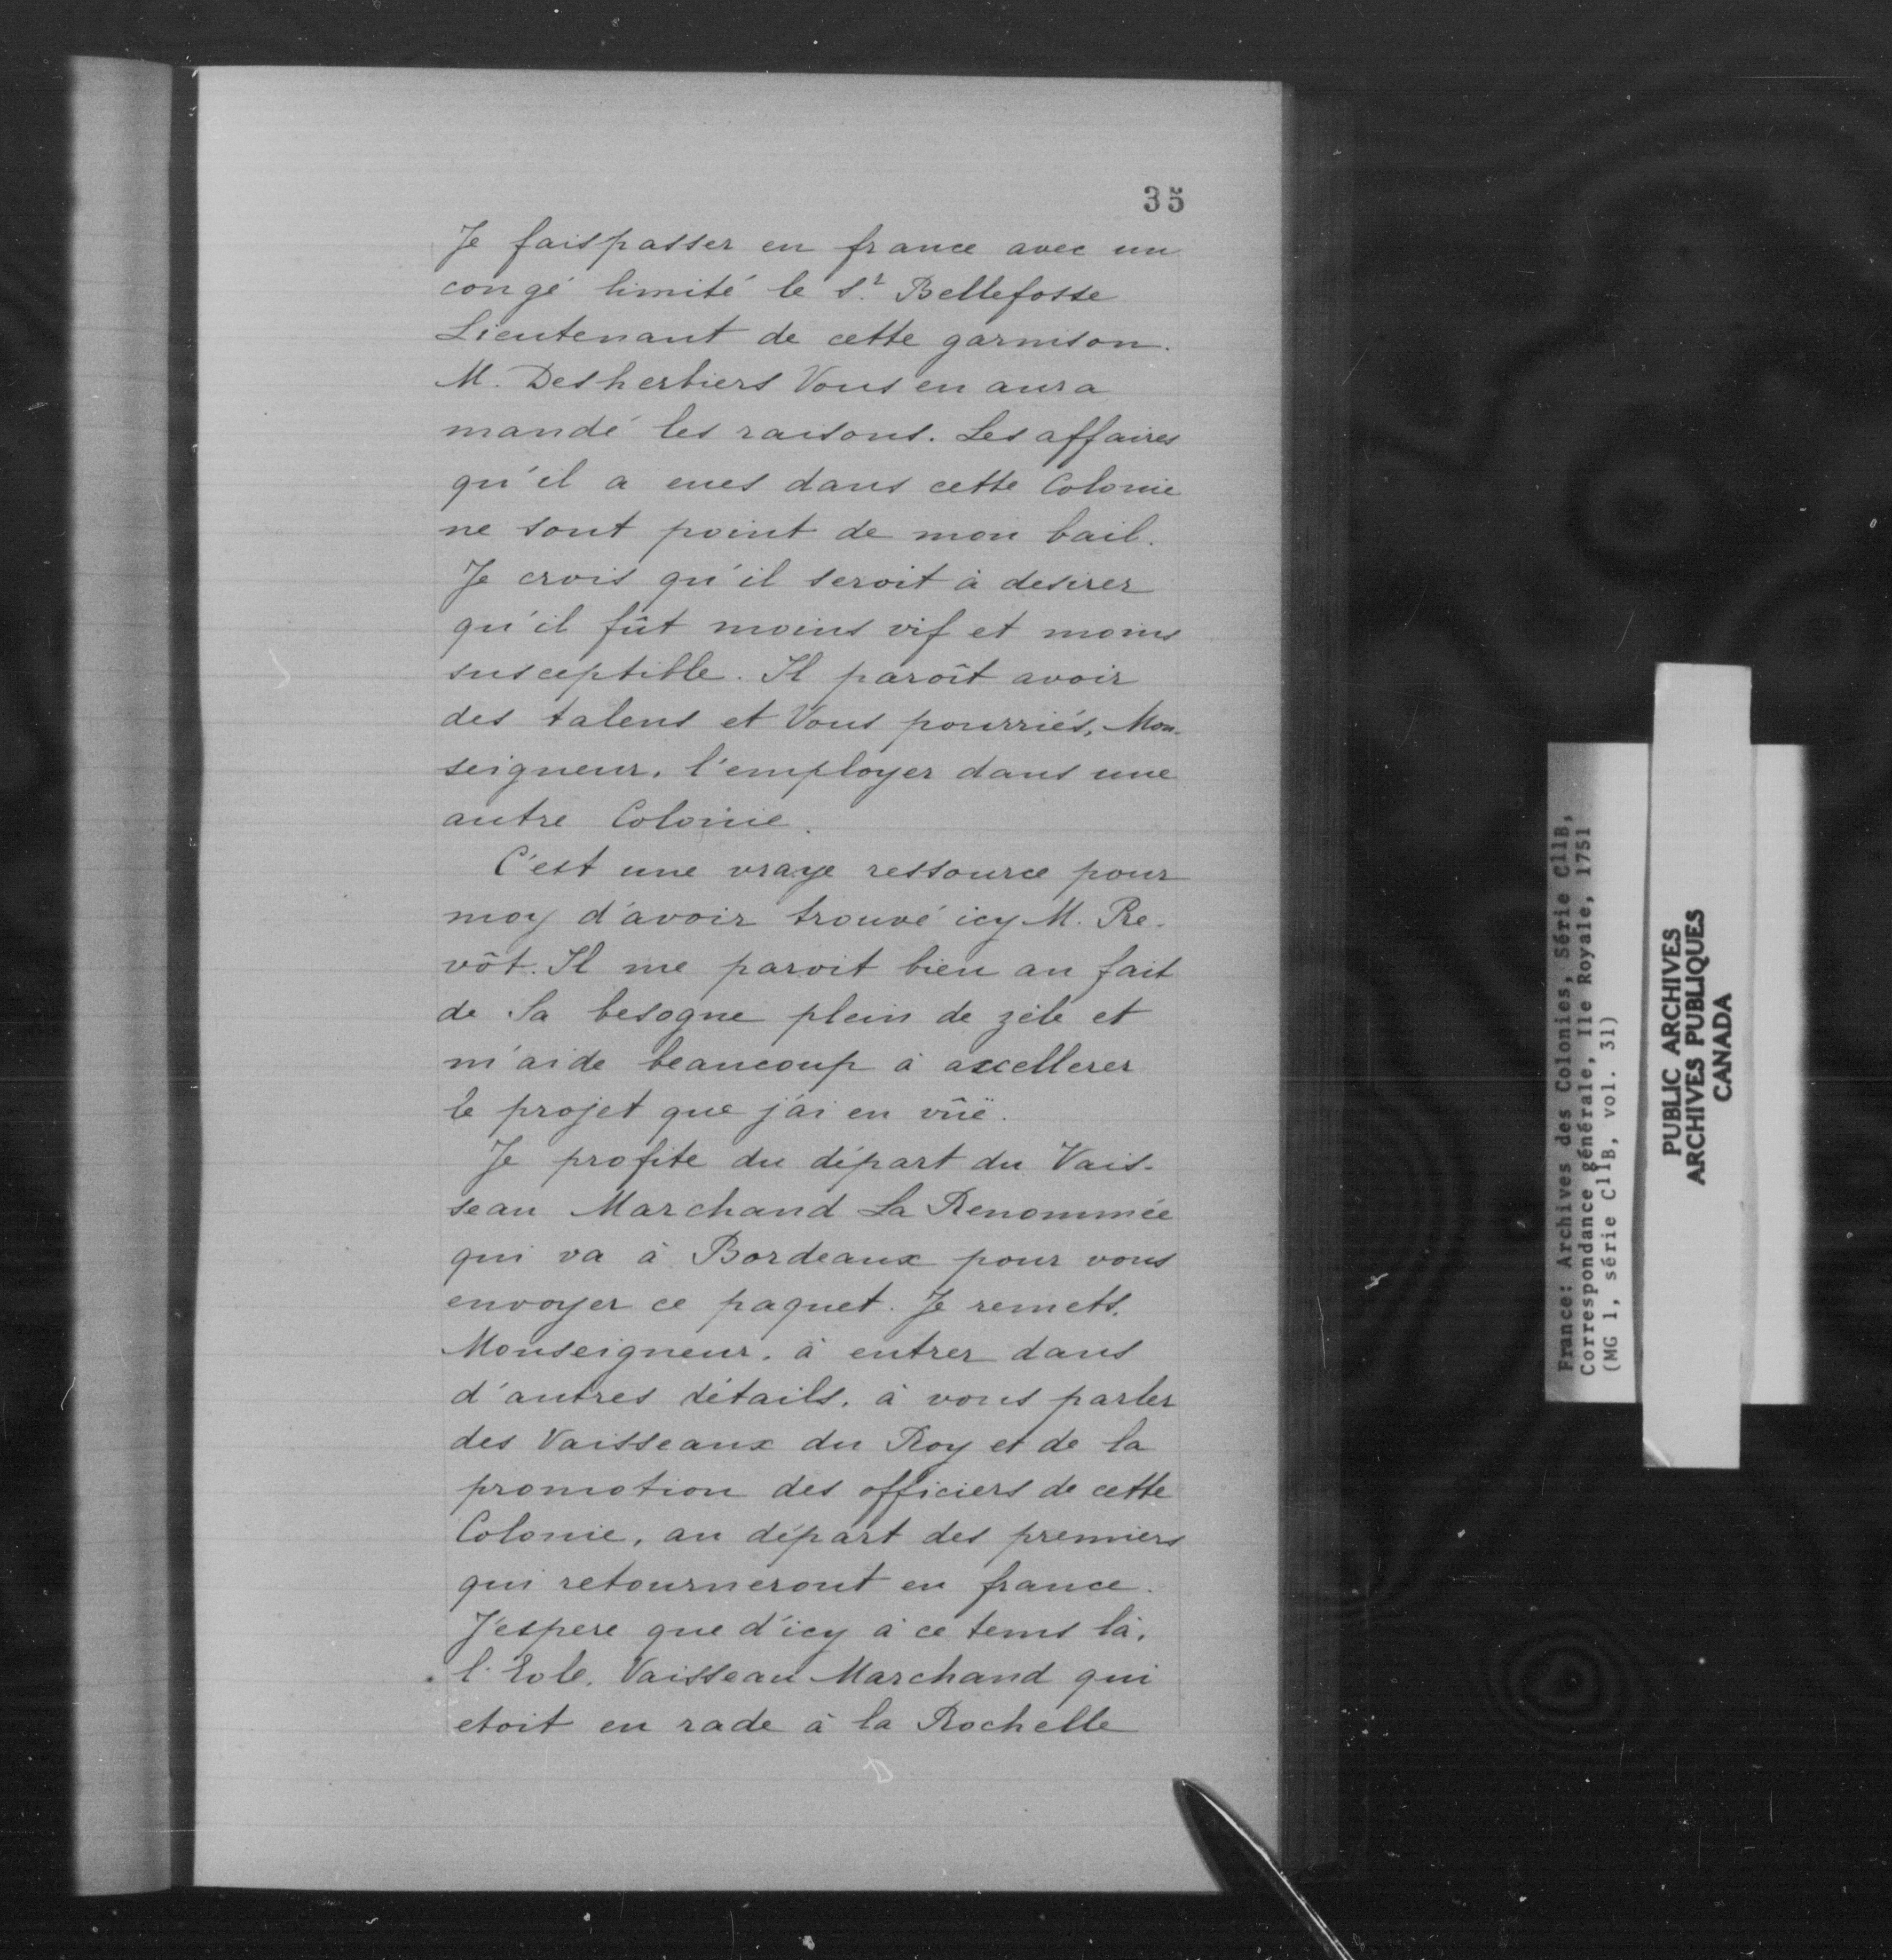 35
Je fais passer en france avec un
congé limité le S.r Bellefosse
Lieutenant de cette garnison.
M. Desherbiers Vous en aura
mandé les raisons. Les affaires
qu'il a eues dans cette Colonie
ne sont point de mon bail.
Je crois qu'il seroit à desirer
qu'il fût moins vif et moins
susceptible. Il paroît avoir
des talens et Vous pourriés, Mon-
seigneur, l'employer dans une
autre Colonie.
C'est une vraye ressource pour
moy d'avoir trouvé icy M. Pre-
vôt. Il me paroit bien au fait
de Sa besogne plein de zèle et
m'aide beaucoup à axcellerer
le projet que j'ai en vûë.
Je profite du départ du Vais-
seau Marchand La Renommée
qui va à Bordeaux pour vous
envoyer ce paquet. Je remets,
Monseigneur, à entrer dans
d'autres détails, à vous parler
des Vaisseaux du Roy et de la
promotion des officiers de cette
Colonie, au départ des premiers
qui retourneront en france.
J'espere que d'icy à ce tems là,
l'Eole, Vaisseau Marchand qui
etoit en rade à la Rochelle
France: Archives des Colonies, Série C11B,
Correspondance générale, Ile Royale, 1751
(MG 1, série C11B, vol. 31)
PUBLIC ARCHIVES
ARCHIVES PUBLIQUES
CANADA